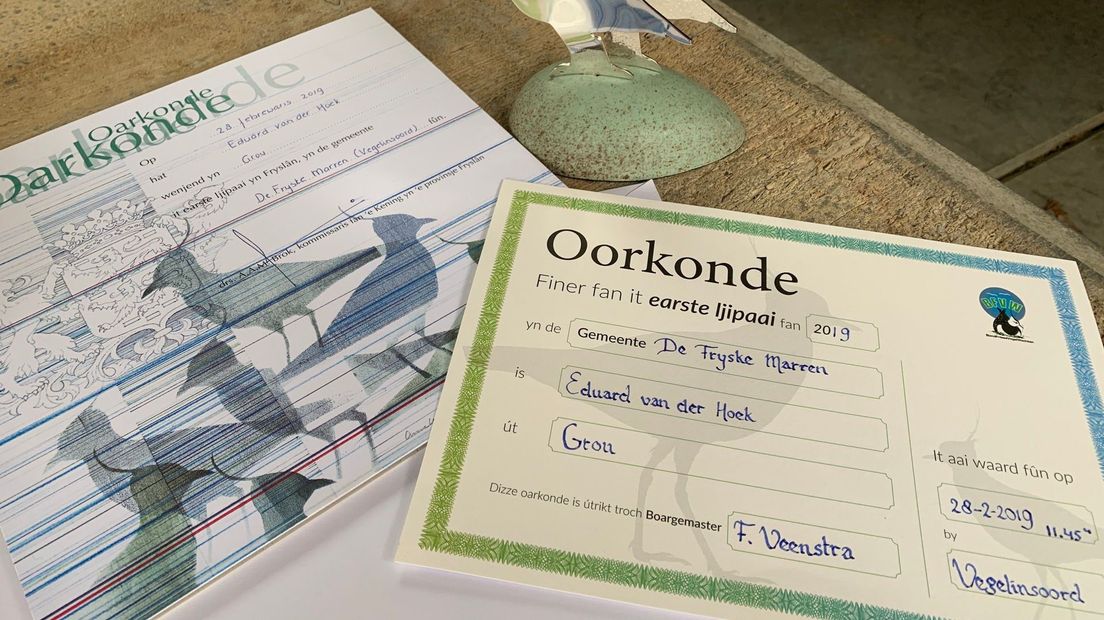 Oarkonde
Oarkonde
Oarkonde
Op 28 febrewaris 2019
hat Eduard van der Hoek
wenjend yn Grou
it earste ljipaai yn Fryslân, yn de gemeente
De Fryske Marren (Vegelinsoord) fûn.
drs. A.A.M. Brok, kommissaris fan 'e Kening yn 'e provinsje Fryslân
Oorkonde
Finer fan it earste ljipaai fan 2019
yn de Gemeente De Fryske Marren
is Eduard van der Hoek
út Grou
Dizze oarkonde is útrikt troch Boargemaster F. Veenstra
BFVW
It aai waard fûn op
28-2-2019 11.45
by
Vegelinsoord